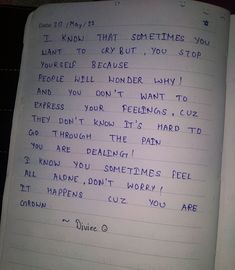 Date 20 / May / 22
I KNOW THAT SOMETIMES YOU
WANT TO CRY BUT, YOU STOP
YOURSELF BECAUSE
PEOPLE WILL WONDER WHY!
AND YOU DON'T WANT TO
EXPRESS YOUR FEELINGS, CUZ
THEY DON'T KNOW IT'S HARD TO
GO THROUGH THE PAIN
YOU ARE DEALING!
I KNOW YOU SOMETIMES FEEL
ALL ALONE, DON'T WORRY!
IT HAPPENS CUZ YOU ARE
GROWN